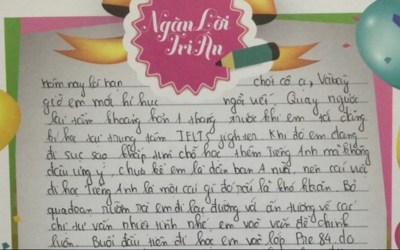 Ngàn Lời
Tri Ân
Hôm nay chơi cô ạ, và bây
giờ em mới hí húc ngồi viết. Quay ngược
lại tầm khoảng hơn 1 tháng trước khi em tới đăng
kí học tại trung tâm IELTS Nguyen. Khi đó em đang
đi sục sạo khắp nơi chỗ học thêm Tiếng Anh mà không
đâu ưng ý, chưa kể em là dân ban A nữa, nên cái việc
đi học Tiếng Anh là một cái gì đó rất là khó khăn. Bỏ
qua đoạn rườm rà em đi lạc đường và ấn tượng về các
chị tư vấn nhiệt tình nhé, em vào vấn đề chính
luôn. Buổi đầu tiên đi học em vào lớp Pre 84, do